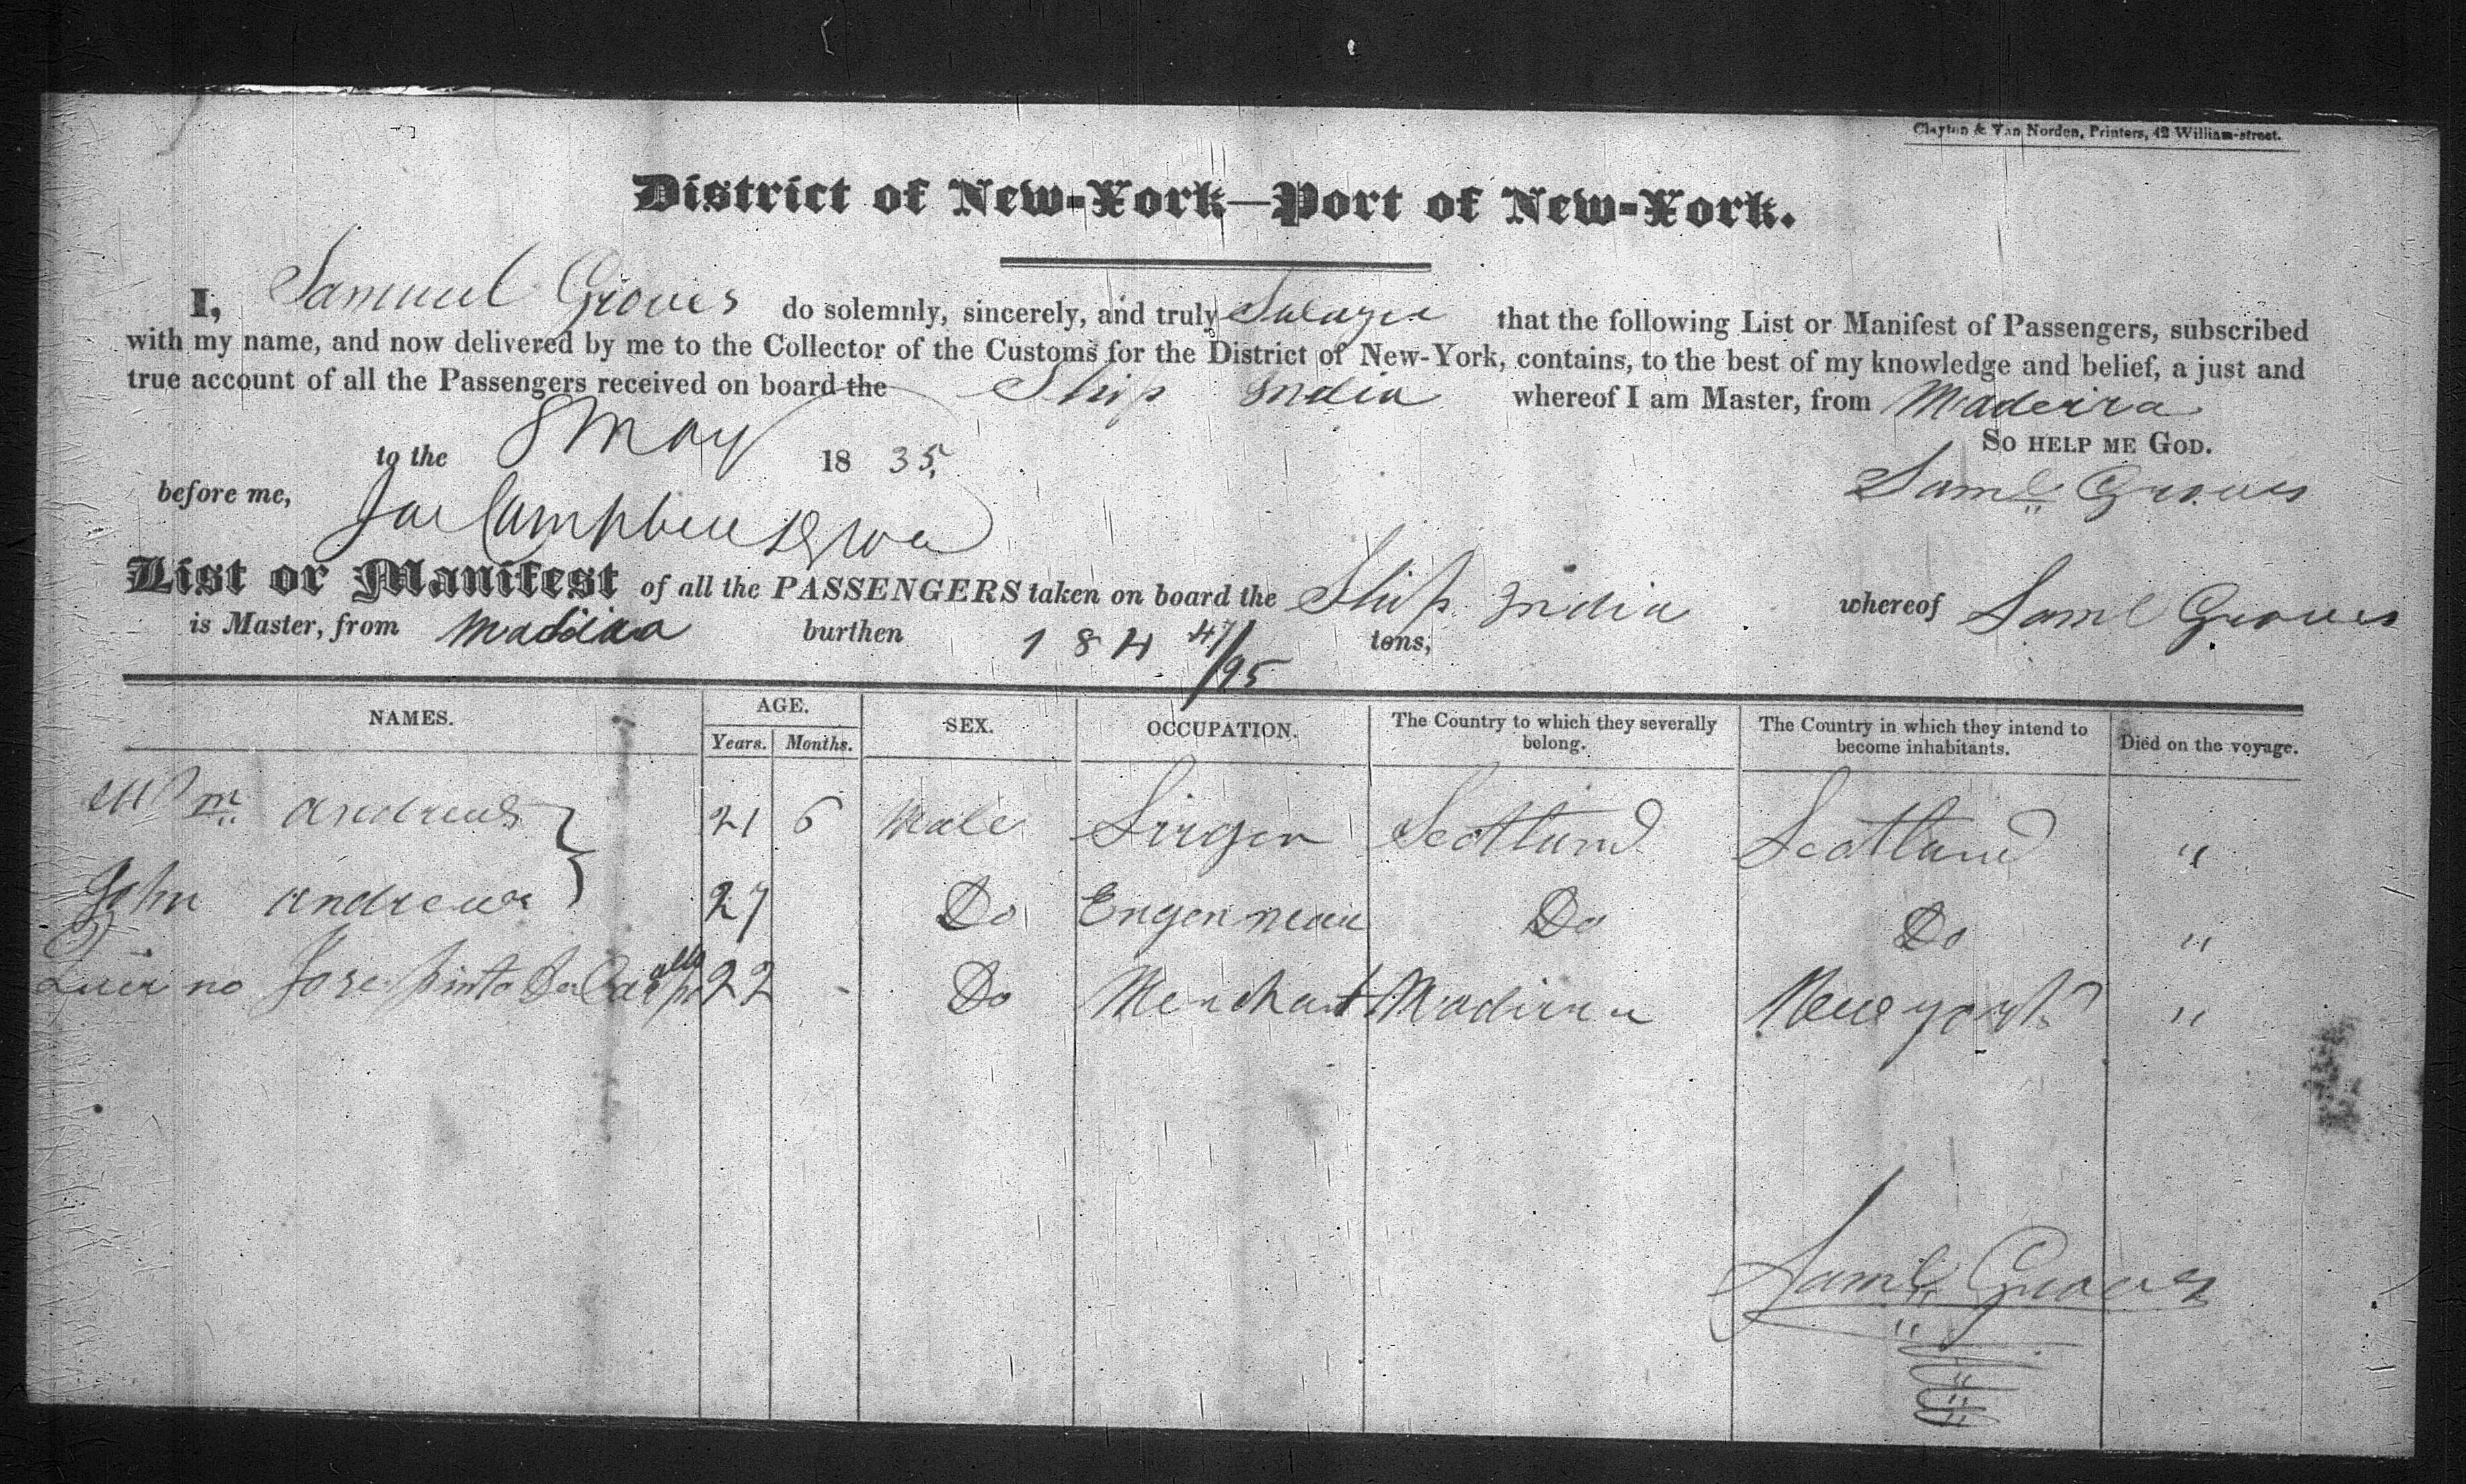 Clayton & Van Norden, Printers, 42 William-street.
District of New-York—Port of New-York.
I, Samuel Groves do solemnly, sincerely, and truly that the following List or Manifest of Passengers, subscribed
with my name, and now delivered by me to the Collector of the Customs for the District of New-York, contains, to the best of my knowledge and belief, a just and
true account of all the Passengers received on board the Ship India whereof I am Master, from Madeira
So help me God.
to the 8 May 1835.
Saml Groves
before me, Campbell
List or Manifest of all the PASSENGERS taken on board the Ship India whereof Saml Groves
is Master, from Madeira burthen 184 47/95 tons,
NAMES. AGE. SEX. OCCUPATION. The Country to which they severally belong. The Country in which they intend to become inhabitants. Died on the voyage.
Years. Months.
Wm Andrews 21 6 Male Scotland Scotland "
John Andrews 27 Do Do Do "
Jose Pinto 22 - Do Merchant Madeira New york "
Saml Groves